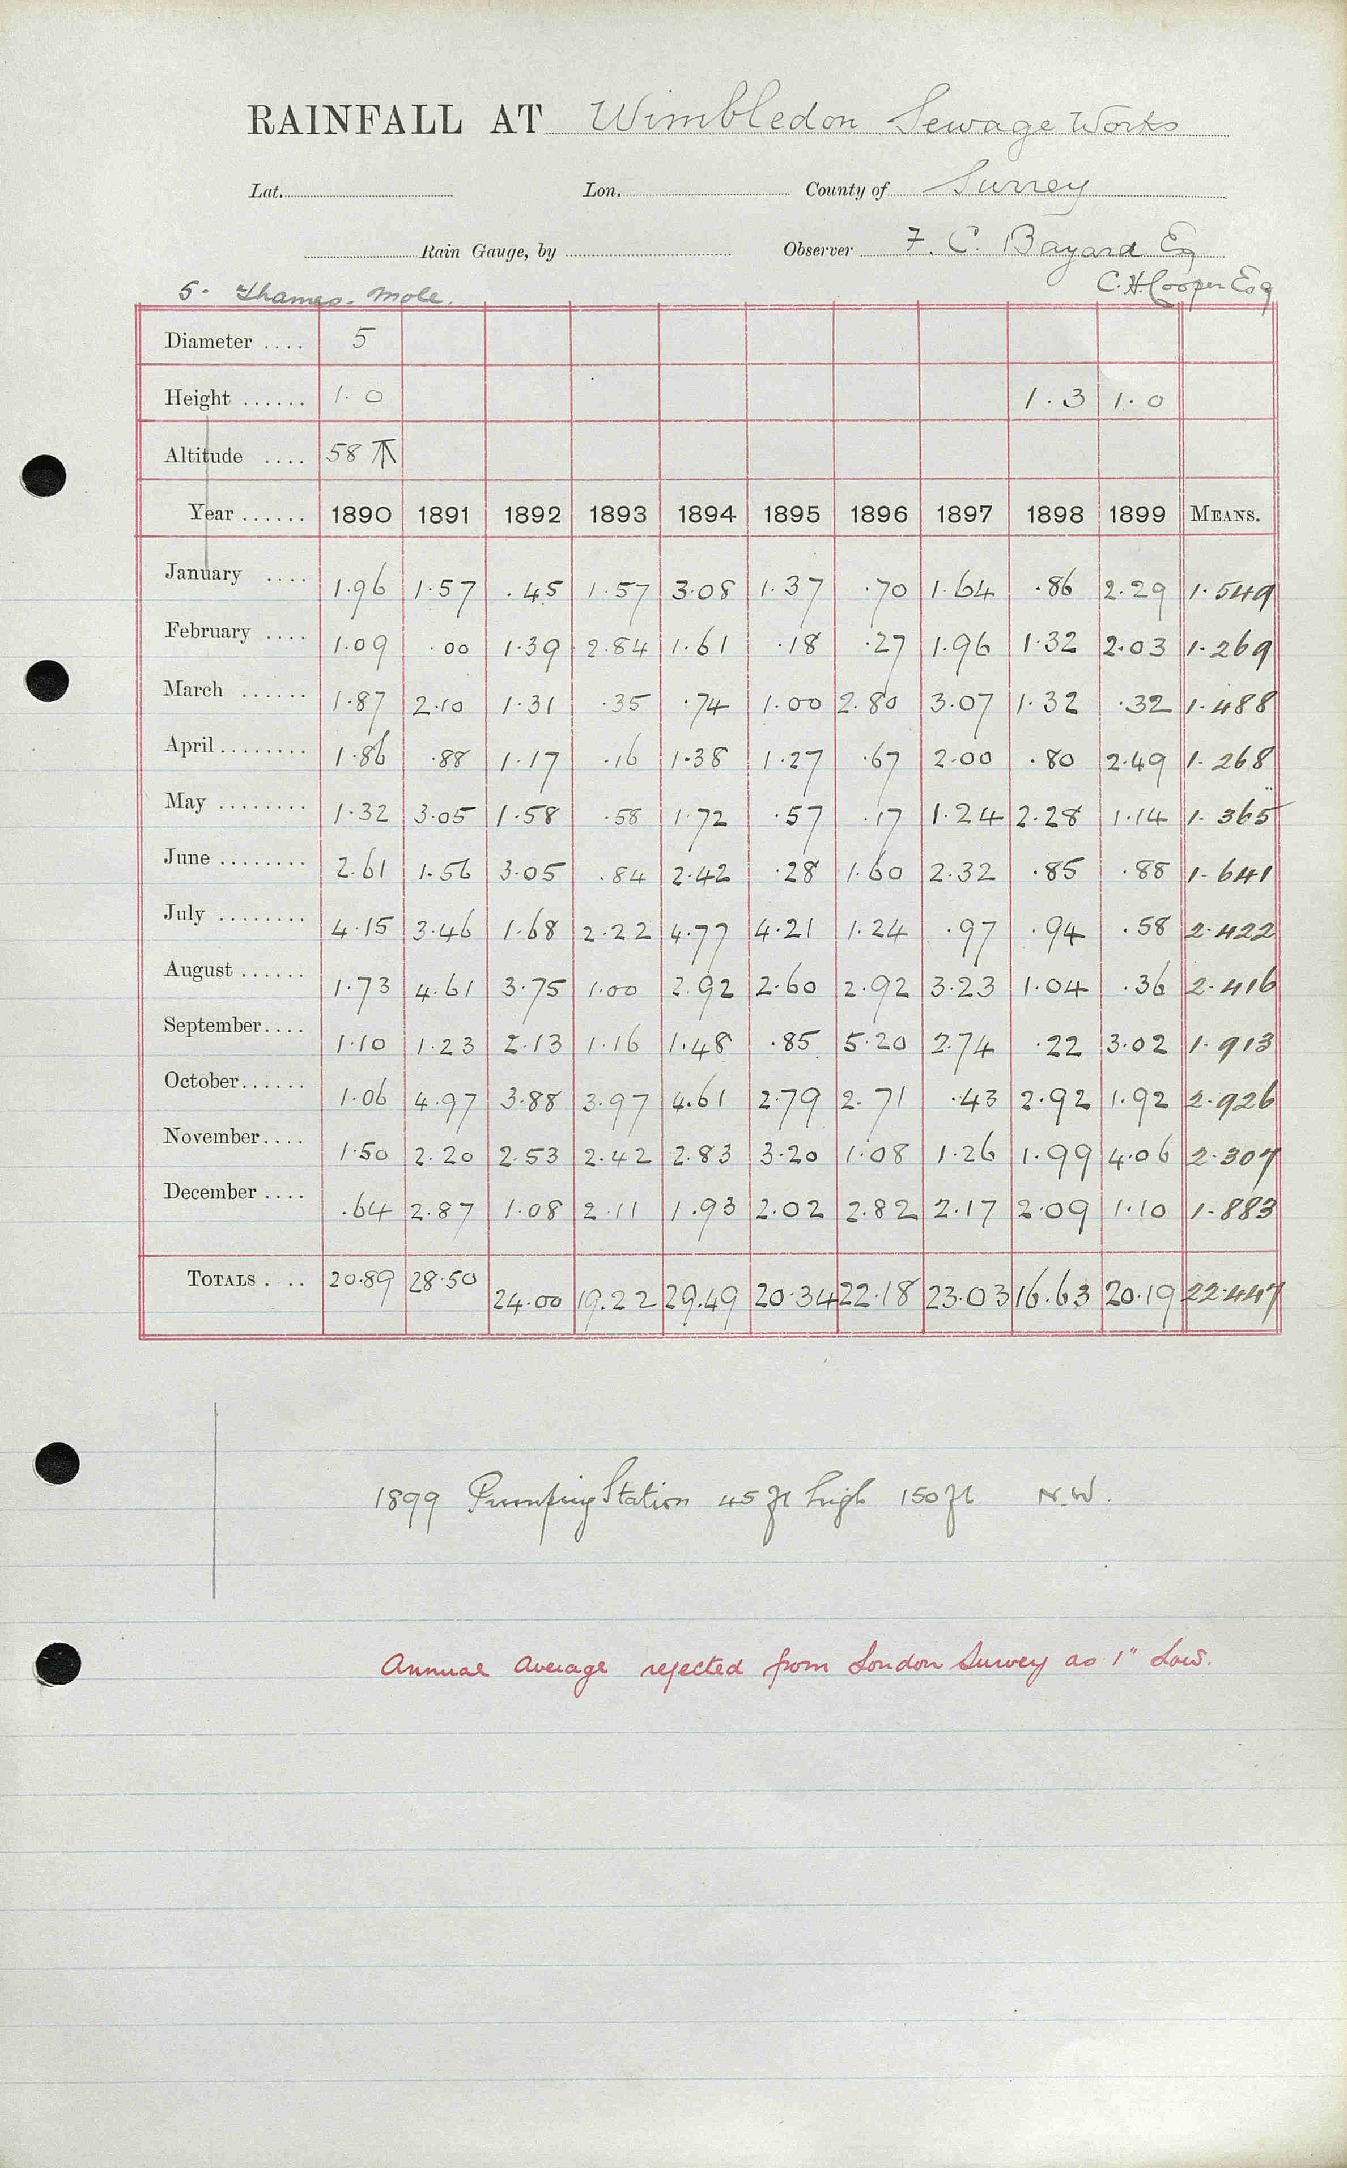 RAINFALL AT Wimbledon Sewage Works
Lat. Lon. County of Surrey
Rain Gauge, by Observer F. C. Bayard Esq
5. Thames-Mole. C. H. Cooper Esq
Diameter .... 5
Height ...... 1.0 1.3 1.0
Altitude .... 58
Year ...... 1890 1891 1892 1893 1894 1895 1896 1897 1898 1899 MEANS.
January .... 1.96 1.57 .45 1.57 3.08 1.37 .70 1.64 .86 2.29 1.549
February .... 1.09 .00 1.39 2.84 1.61 .18 .27 1.96 1.32 2.03 1.269
March ...... 1.87 2.10 1.31 .35 .74 1.00 2.80 3.07 1.32 .32 1.488
April ........ 1.86 .88 1.17 .16 1.38 1.27 .67 2.00 .80 2.49 1.268
May ........ 1.32 3.05 1.58 .58 1.72 .57 .17 1.24 2.28 1.14 1.365
June ........ 2.61 1.56 3.05 .84 2.42 .28 1.60 2.32 .85 .88 1.641
July ........ 4.15 3.46 1.68 2.22 4.77 4.21 1.24 .97 .94 .58 2.422
August ...... 1.73 4.61 3.75 1.00 2.92 2.60 2.92 3.23 1.04 .36 2.416
September.... 1.10 1.23 2.13 1.16 1.48 .85 5.20 2.74 .22 3.02 1.913
October...... 1.06 4.97 3.88 3.97 4.61 2.79 2.71 .43 2.92 1.92 2.926
November.... 1.50 2.20 2.53 2.42 2.83 3.20 1.08 1.26 1.99 4.06 2.307
December .... .64 2.87 1.08 2.11 1.93 2.02 2.82 2.17 2.09 1.10 1.883
TOTALS . .. 20.89 28.50 24.00 19.22 29.49 20.34 22.18 23.03 16.63 20.19 22.447
1899 Pumping Station 45 ft high 150 ft N.W.
Annual average rejected from London Survey as 1" Low.